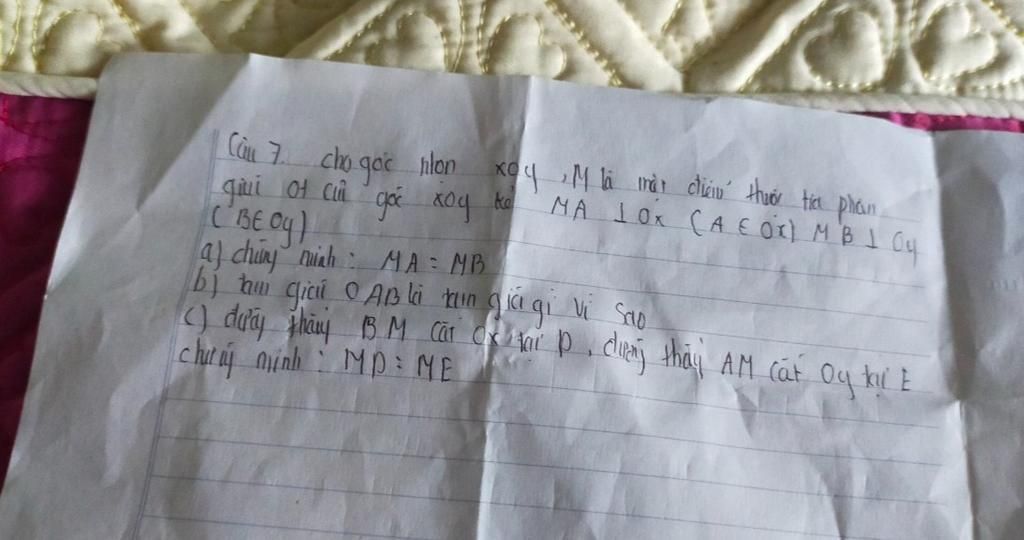 Câu 7. cho góc nhon xoy, M là một điểm thuộc tia phân
giúi Ot củi góc xoy kẻ MA ⊥ Ox (A ∈ Ox) MB ⊥ Oy
(B∈Oy)
a) chứng minh: MA = MB
b) tam giúi OAB là tam giúi gì Vì Sao
c) đườy thẳng BM cắt Ox tại D, đường thẳng AM cắt Oy tại E
chứng minh: MD = ME